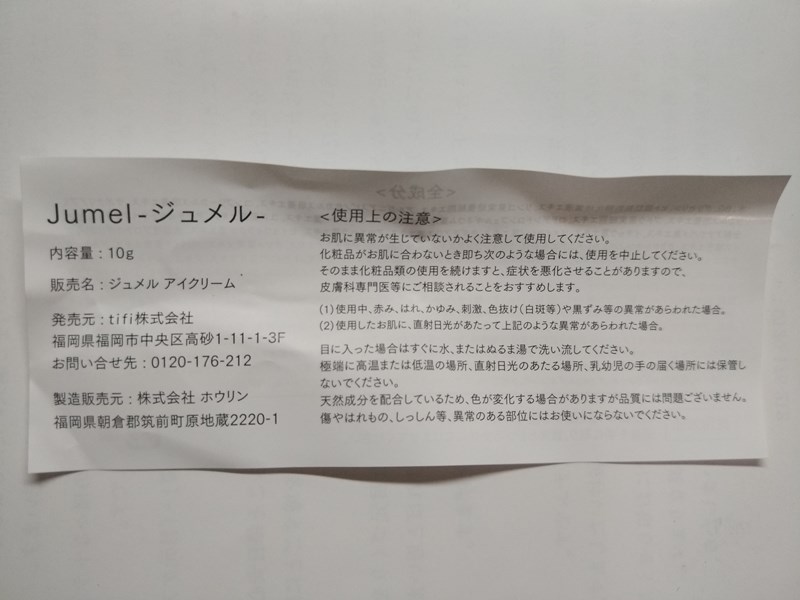 Jumel-ジュメル-
内容量：10g
販売名：ジュメル アイクリーム
発売元：tifi株式会社
福岡県福岡市中央区高砂1-11-1-3F
お問い合せ先：0120-176-212
製造販売元：株式会社 ホウリン
福岡県朝倉郡筑前町原地蔵2220-1
<使用上の注意>
お肌に異常が生じていないかよく注意して使用してください。
化粧品がお肌に合わないとき即ち次のような場合には、使用を中止してください。
そのまま化粧品類の使用を続けますと、症状を悪化させることがありますので、
皮膚科専門医等にご相談されることをおすすめします。
(1)使用中、赤み、はれ、かゆみ、刺激、色抜け(白斑等)や黒ずみ等の異常があらわれた場合。
(2)使用したお肌に、直射日光があたって上記のような異常があらわれた場合。
目に入った場合はすぐに水、またはぬるま湯で洗い流してください。
極端に高温または低温の場所、直射日光のあたる場所、乳幼児の手の届く場所には保管し
ないでください。
天然成分を配合しているため、色が変化する場合がありますが品質には問題ございません。
傷やはれもの、しっしん等、異常のある部位にはお使いにならないでください。
<全成分>